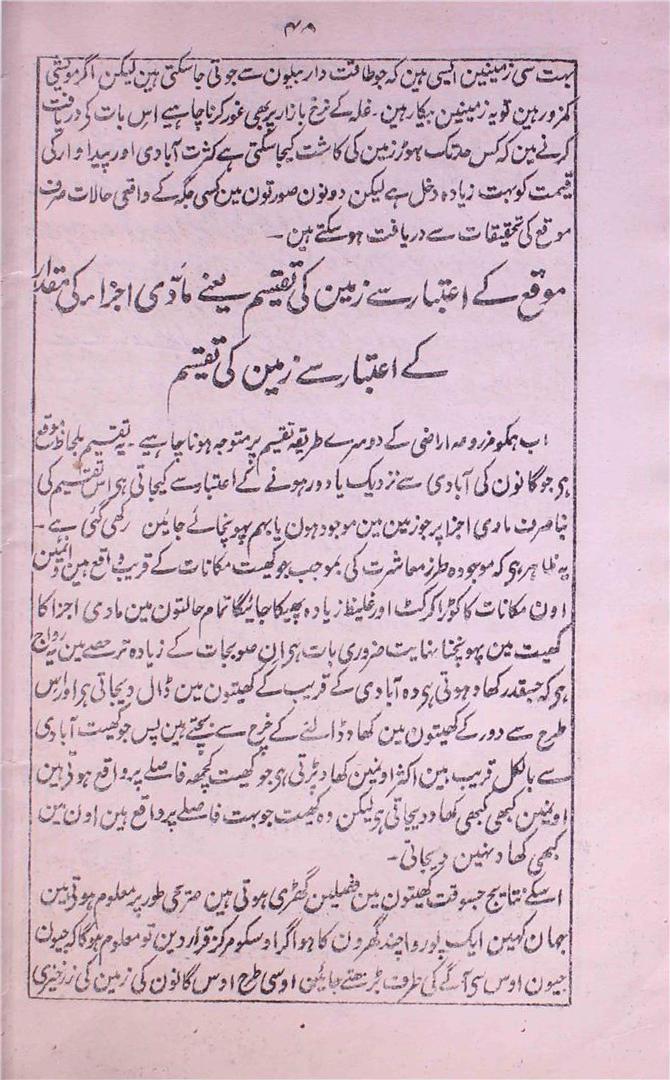 ۴۹
بہت سی زمینین ایسی ہین کہ جو طاقت دار بیلون سے جوتی جا سکتی ہین لیکن اگر مویشی
کمزور ہین تو یہ زمینین بیکار ہین ۔ غلہ کے نرخ بازار پر بھی غور کرنا چاہیے اس بات کی دریافت
کرنے مین کہ کس حد تک ہوڑ زمین کی کاشت کیجا سکتی ہے کثرت آبادی اور پیداوار کی
قیمت کو بہت زیادہ دخل ہے لیکن دونون صورتون مین کسی جگہ کے واقعی حالات صرف
موقع کی تحقیقات سے دریافت ہو سکتے ہین ۔
موقع کے اعتبار سے زمین کی تقسیم یعنے مادّی اجزاء کی مقدار
کے اعتبار سے زمین کی تقسیم
اب ہمکو مزروعہ اراضی کے دوسرے طریقہ تقسیم پر متوجہ ہونا چاہیے ۔ یہ تقسیم بلحاظ موقع
ہی جو گانون کی آبادی سے نزدیک یا دور ہونے کے اعتبار سے کیجاتی ہی اس تقسیم کی
بنا صرف مادی اجزا پر جو زمین مین موجود ہون یا بہم پہونچائے جائین رکھی گئی ہے ۔
یہ ظاہر ہی کہ موجودہ طرز معاشرت کی بموجب جو کھیت مکانات کے قریب واقع ہین وانہین
اون مکانات کا کوڑا کرکٹ اور غلیظ زیادہ پھینکا جائیگا تمام حالتون مین مادی اجزا کا
کھیت مین پہونچنا نہایت ضروری بات ہی ان صوبجات کے زیادہ تر حصے مین یہ رواج
ہی کہ جسقدر کھاد ہوتی ہی وہ آبادی کے قریب کے کھیتون مین ڈال دیجاتی ہی اور اس
طرح سے دور کے کھیتون مین کھاد ڈالنے کے خرچ سے بچتے ہین پس جو کھیت آبادی
سے بالکل قریب ہین اکثر اونہین کھاد پڑتی ہی جو کھیت کچھہ فاصلے پر واقع ہوتے ہین
اونہین کبھی کبھی کھاد دیجاتی ہی لیکن وہ کھیت جو بہت فاصلے پر واقع ہین اون مین
کبھی کھاد نہین دیجاتی ۔
اسکے نتایج جسوقت کھیتون مین فصلین کھڑی ہوتی ہین صریحی طور پر معلوم ہوتے ہین
جہان کہین ایک پوروا چند گھرون کا ہو اگر اوسکو مرکز قرار دین تو معلوم ہوگا کہ جیون
جیون اوس سی آگے کی طرف بڑھتے جائین اوسی طرح اوس گانون کی زمین کی زرخیزی